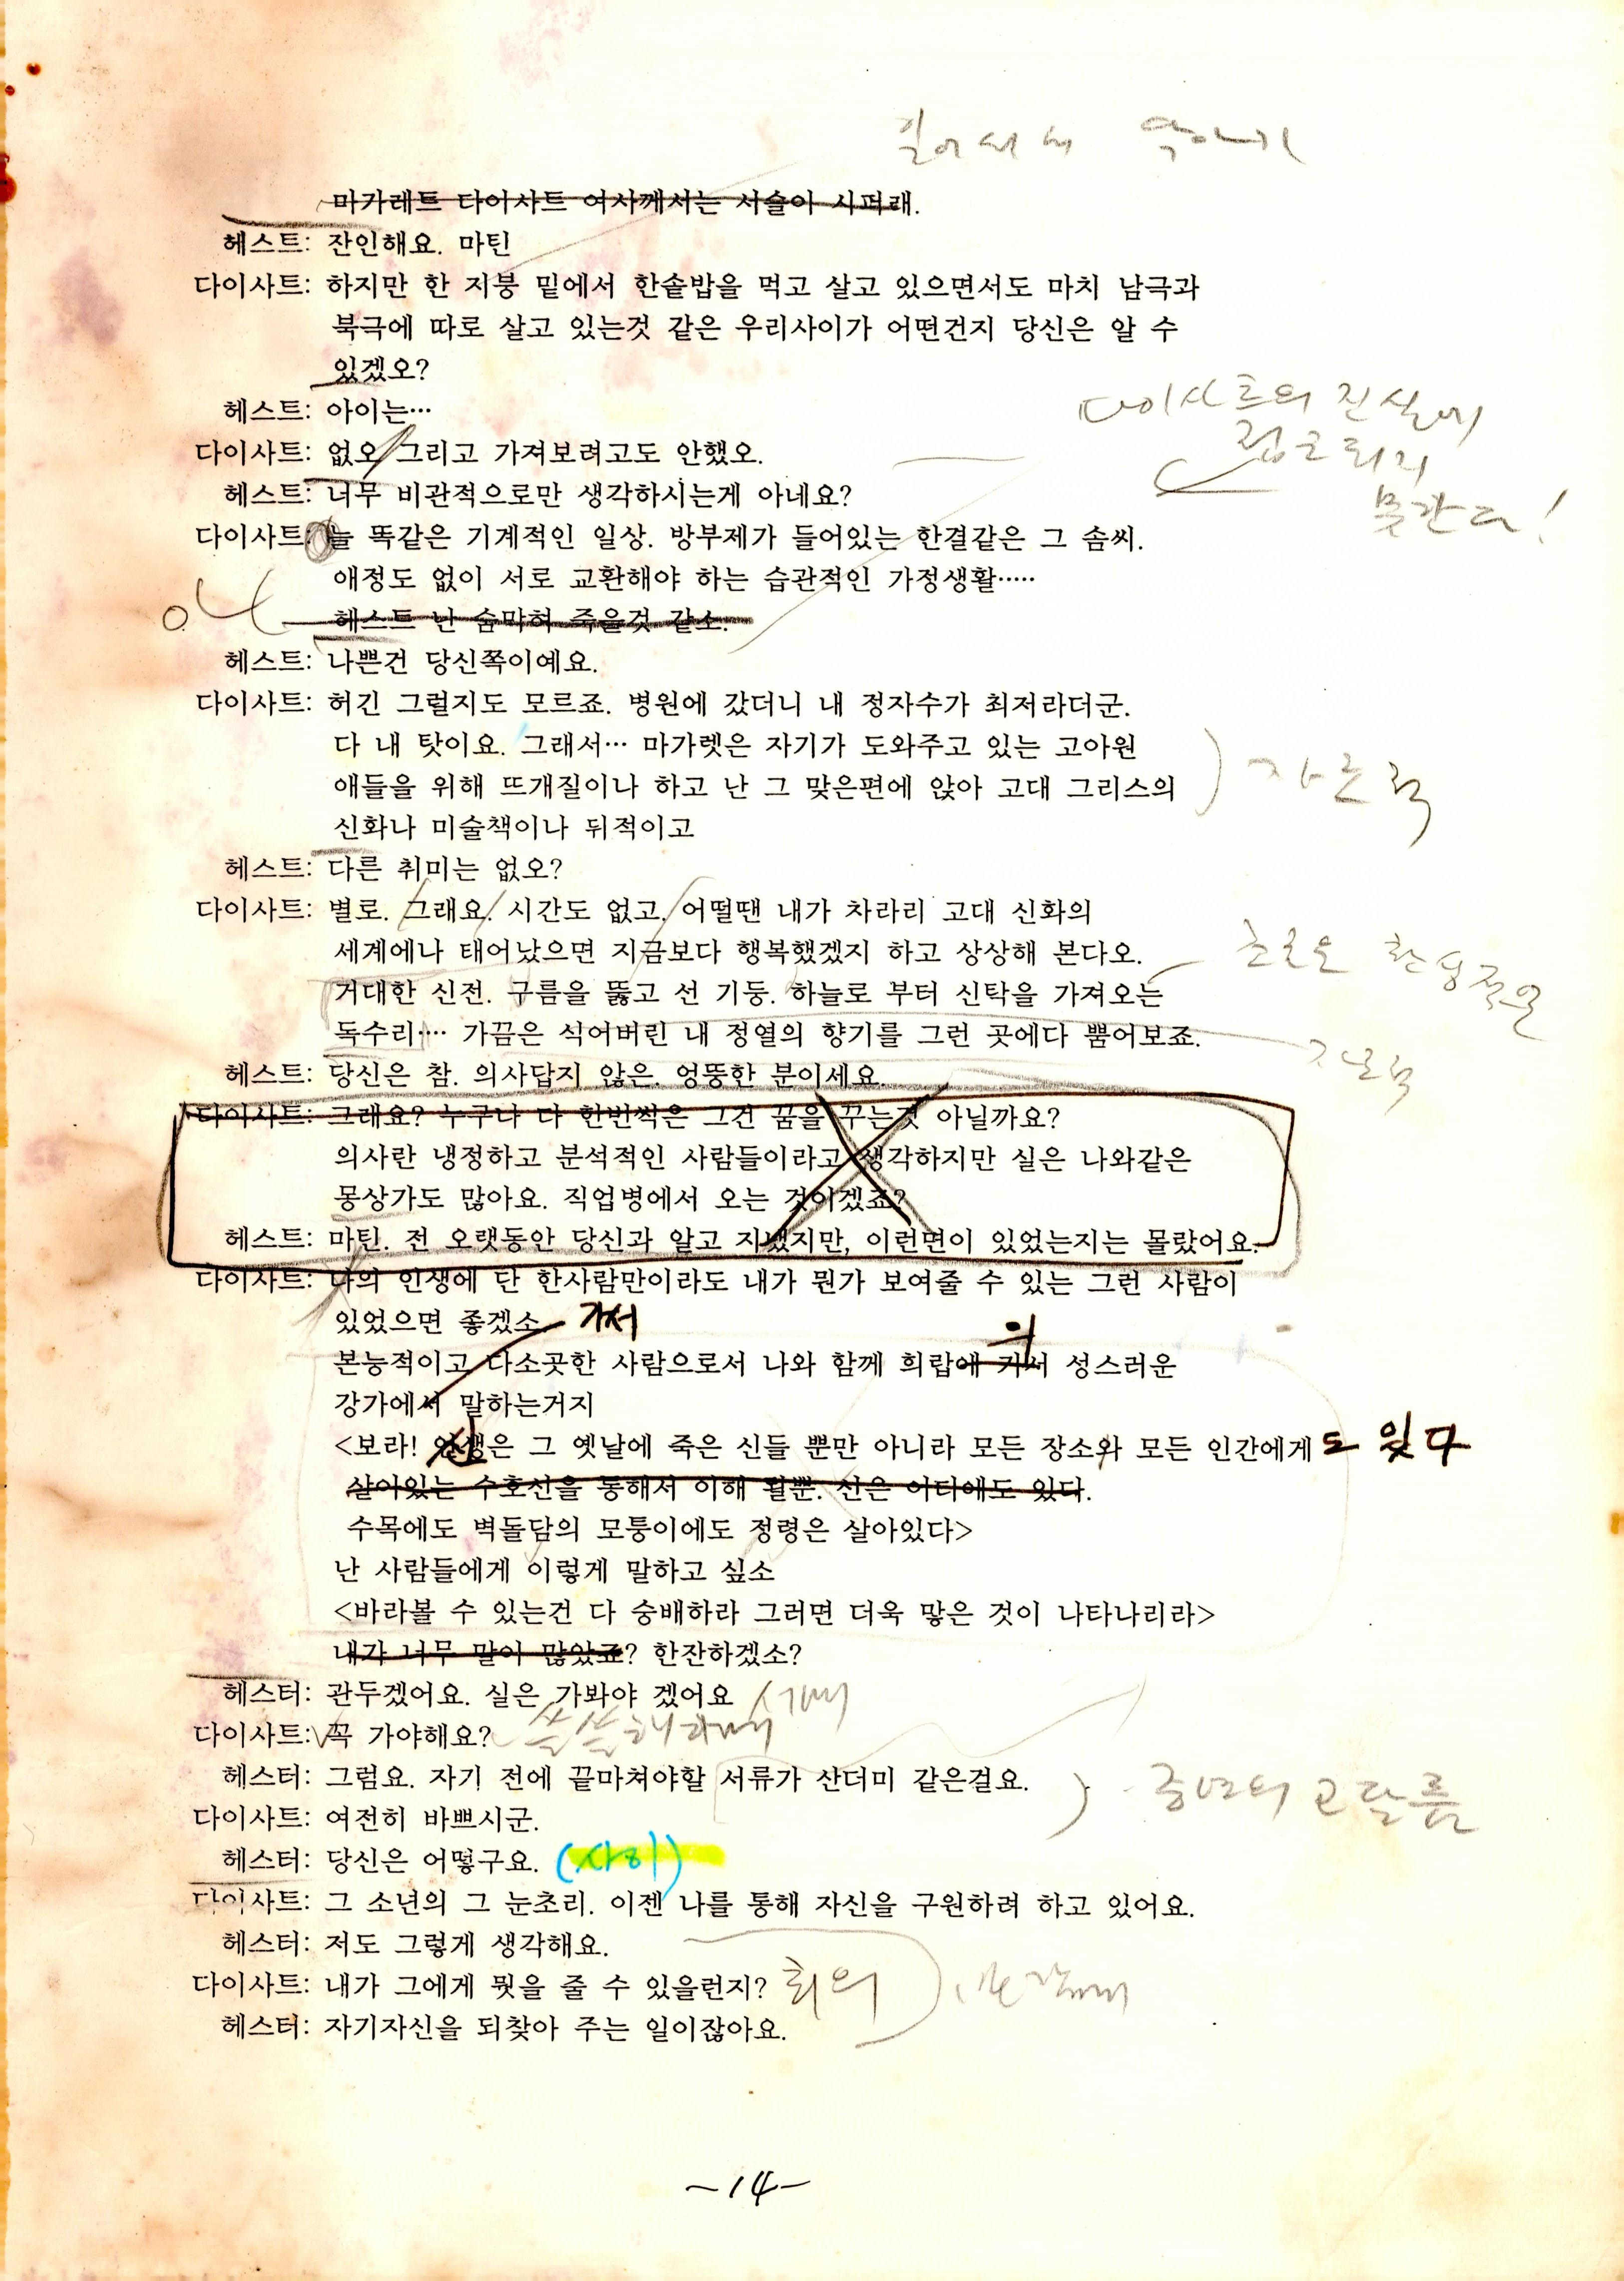 일어서서
마가레트 다이사트 여사께서는 서슬이 시퍼래.
헤스트: 잔인해요. 마틴
다이사트: 하지만 한 지붕 밑에서 한솥밥을 먹고 살고 있으면서도 마치 남극과
북극에 따로 살고 있는것 같은 우리사이가 어떤건지 당신은 알 수
있겠오?
헤스트: 아이는…
다이사트의 진실에
접근되지
못한다!
다이사트: 없오 그리고 가져보려고도 안했오.
헤스트: 너무 비관적으로만 생각하시는게 아네요?
다이사트: 늘 똑같은 기계적인 일상. 방부제가 들어있는 한결같은 그 솜씨.
애정도 없이 서로 교환해야 하는 습관적인 가정생활…..
헤스트 난 숨막혀 죽을것 같소.
헤스트: 나쁜건 당신쪽이예요.
다이사트: 허긴 그럴지도 모르죠. 병원에 갔더니 내 정자수가 최저라더군.
다 내 탓이요. 그래서… 마가렛은 자기가 도와주고 있는 고아원
애들을 위해 뜨개질이나 하고 난 그 맞은편에 앉아 고대 그리스의
신화나 미술책이나 뒤적이고
헤스트: 다른 취미는 없오?
다이사트: 별로. 그래요. 시간도 없고, 어떨땐 내가 차라리 고대 신화의
세계에나 태어났으면 지금보다 행복했겠지 하고 상상해 본다오.
거대한 신전. 구름을 뚫고 선 기둥. 하늘로 부터 신탁을 가져오는
독수리…. 가끔은 식어버린 내 정열의 향기를 그런 곳에다 뿜어보죠.
헤스트: 당신은 참. 의사답지 않은. 엉뚱한 분이세요.
다이사트: 그래요? 누구나 다 한번씩은 그런 꿈을 꾸는것 아닐까요?
의사란 냉정하고 분석적인 사람들이라고 생각하지만 실은 나와같은
몽상가도 많아요. 직업병에서 오는 것이겠죠?
헤스트: 마틴. 전 오랫동안 당신과 알고 지냈지만, 이런면이 있었는지는 몰랐어요.
다이사트: 나의 인생에 단 한사람만이라도 내가 뭔가 보여줄 수 있는 그런 사람이
있었으면 좋겠소 가서
의
본능적이고 다소곳한 사람으로서 나와 함께 희랍에 가서 성스러운
강가에서 말하는거지
<보라! 인생은 그 옛날에 죽은 신들 뿐만 아니라 모든 장소와 모든 인간에게 도 있다
신
살아있는 수호신을 통해서 이해 될뿐. 신은 어디에도 있다.
수목에도 벽돌담의 모퉁이에도 정령은 살아있다>
난 사람들에게 이렇게 말하고 싶소
<바라볼 수 있는건 다 숭배하라 그러면 더욱 많은 것이 나타나리라>
내가 너무 말이 많았죠? 한잔하겠소?
헤스터: 관두겠어요. 실은 가봐야 겠어요
다이사트: 꼭 가야해요? 쓸쓸해하며
헤스터: 그럼요. 자기 전에 끝마쳐야할 서류가 산더미 같은걸요.
중년의 고달픔
다이사트: 여전히 바쁘시군.
헤스터: 당신은 어떻구요. (사이)
다이사트: 그 소년의 그 눈초리. 이젠 나를 통해 자신을 구원하려 하고 있어요.
헤스터: 저도 그렇게 생각해요.
다이사트: 내가 그에게 뭣을 줄 수 있을런지? 회의
헤스터: 자기자신을 되찾아 주는 일이잖아요.
-14-